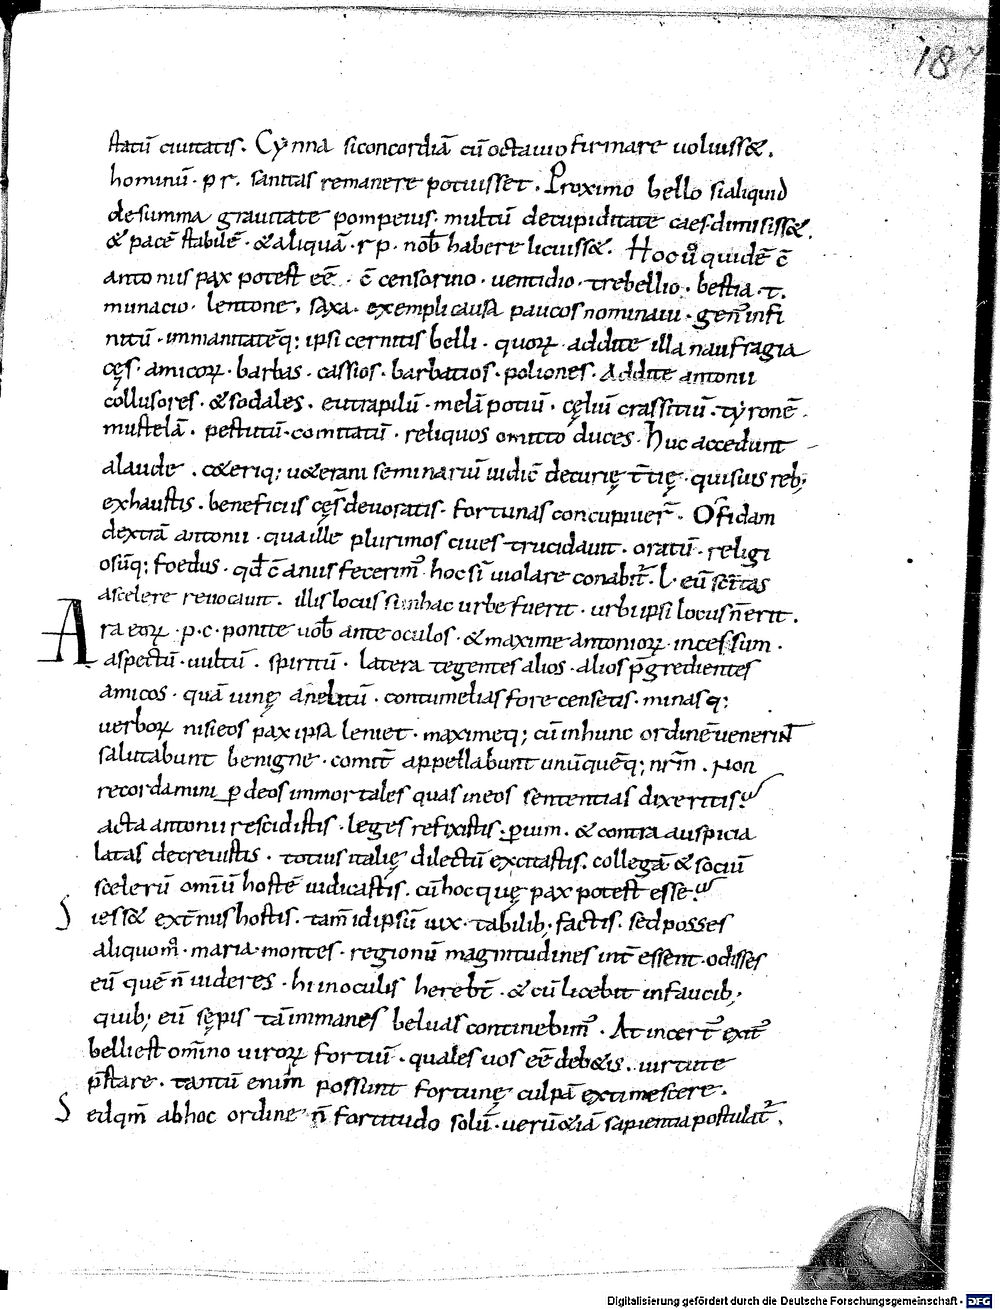 187
statū ciuitatis. Cynna si concordiā cū octauio firmare uoluiss&.
hominū · p r · sanitas remanere potuisset. Proximo bello si aliquid
de summa grauitate pompeius · multū de cupiditate caes · dimisiss&.
& pacē stabilē · & aliquā · r p · nob̄ habere licuiss&. Hoc ů quidē ē
antonius pax potest eē · c̄ censorino · uentidio · trebellio · bestia · t.
munacio · lentone, saxa · exempli causa paucos nominaui · gen infi
nitū · immanitatēq; ipsi cernitis belli · quoꝝ addite illa naufragia
cęs · amicoꝝ · barbas · cassios · barbatios · poliones. Addite antonii
collusores · & sodales · eutrapilū · melā potiū · cęliū crassitiū · tyronē ·
mustelā · pestutū · comitatū · reliquos omitto duces · huc accedunt
alaude · c&eriq; u&erani seminariū iudic̄ decurię t̄tię · qui suis reb;
exhaustis · beneficiis cęs̄ deuoratis · fortunas concupiuer̄ · O fidam
dextrā antonii · qua ille plurimos ciues trucidauit · oratū · religi
osūq; foedus · qd̄ c̄ anus fecerim᷒ hoc si uiolare conabit᷑ · l · eū sēitas
a scelere reuocauit. illis locus si in hac urbe fuerit · urbi ipsi locus n̄ erit.
Ara eoꝝ · p · c · ponite uob̄ ante oculos · & maxime antonioꝝ · incessum ·
aspectū · uultū · spiritū · latera tegentes alios · alios p̄gredientes
amicos · quā uinę anelitū · contumelias fore censetis · minasq;
uerboꝝ nisi eos pax ipsa leniet · maximeq; cū in hunc ordinē uenerint
salutabunt benigne · comit̄ appellabunt unūquēq; nr̄m · Non
recordamini ꝑ deos immortales quas in eos sententias dixeritis?
acta antonii rescidistis · leges refixistis · ꝑ uim · & contra auspicia
latas decreuistis · totius italię dilectū excitastis · collegā & sociū
scelerū omīū hostē iudicastis · cū hoc quę pax potest esse?
Si ess& ext̄nus hostis · tam̄ id ipsū uix · tabilib; factis · sed posses
aliquom̊ · maria · montes · regionū magnitudines int̄ essent · odisses
eū quē n̄ uideres · hi in oculis herebt̄ · & cū licebit in faucib;
quib; eū sępis tā immanes beluas continebim᷒ · At incert᷒ exit᷒
belli est om̄ino uiroꝝ fortiū · quales uos eē deb&is · uirtute
p̄stare · tantū enim possunt fortunę culpā extimescere.
Sed qm̄ ab hoc ordine n̄ fortitudo solū · uerū &iā sapientia postulat᷑.
Digitalisierung gefördert durch die Deutsche Forschungsgemeinschaft - DFG